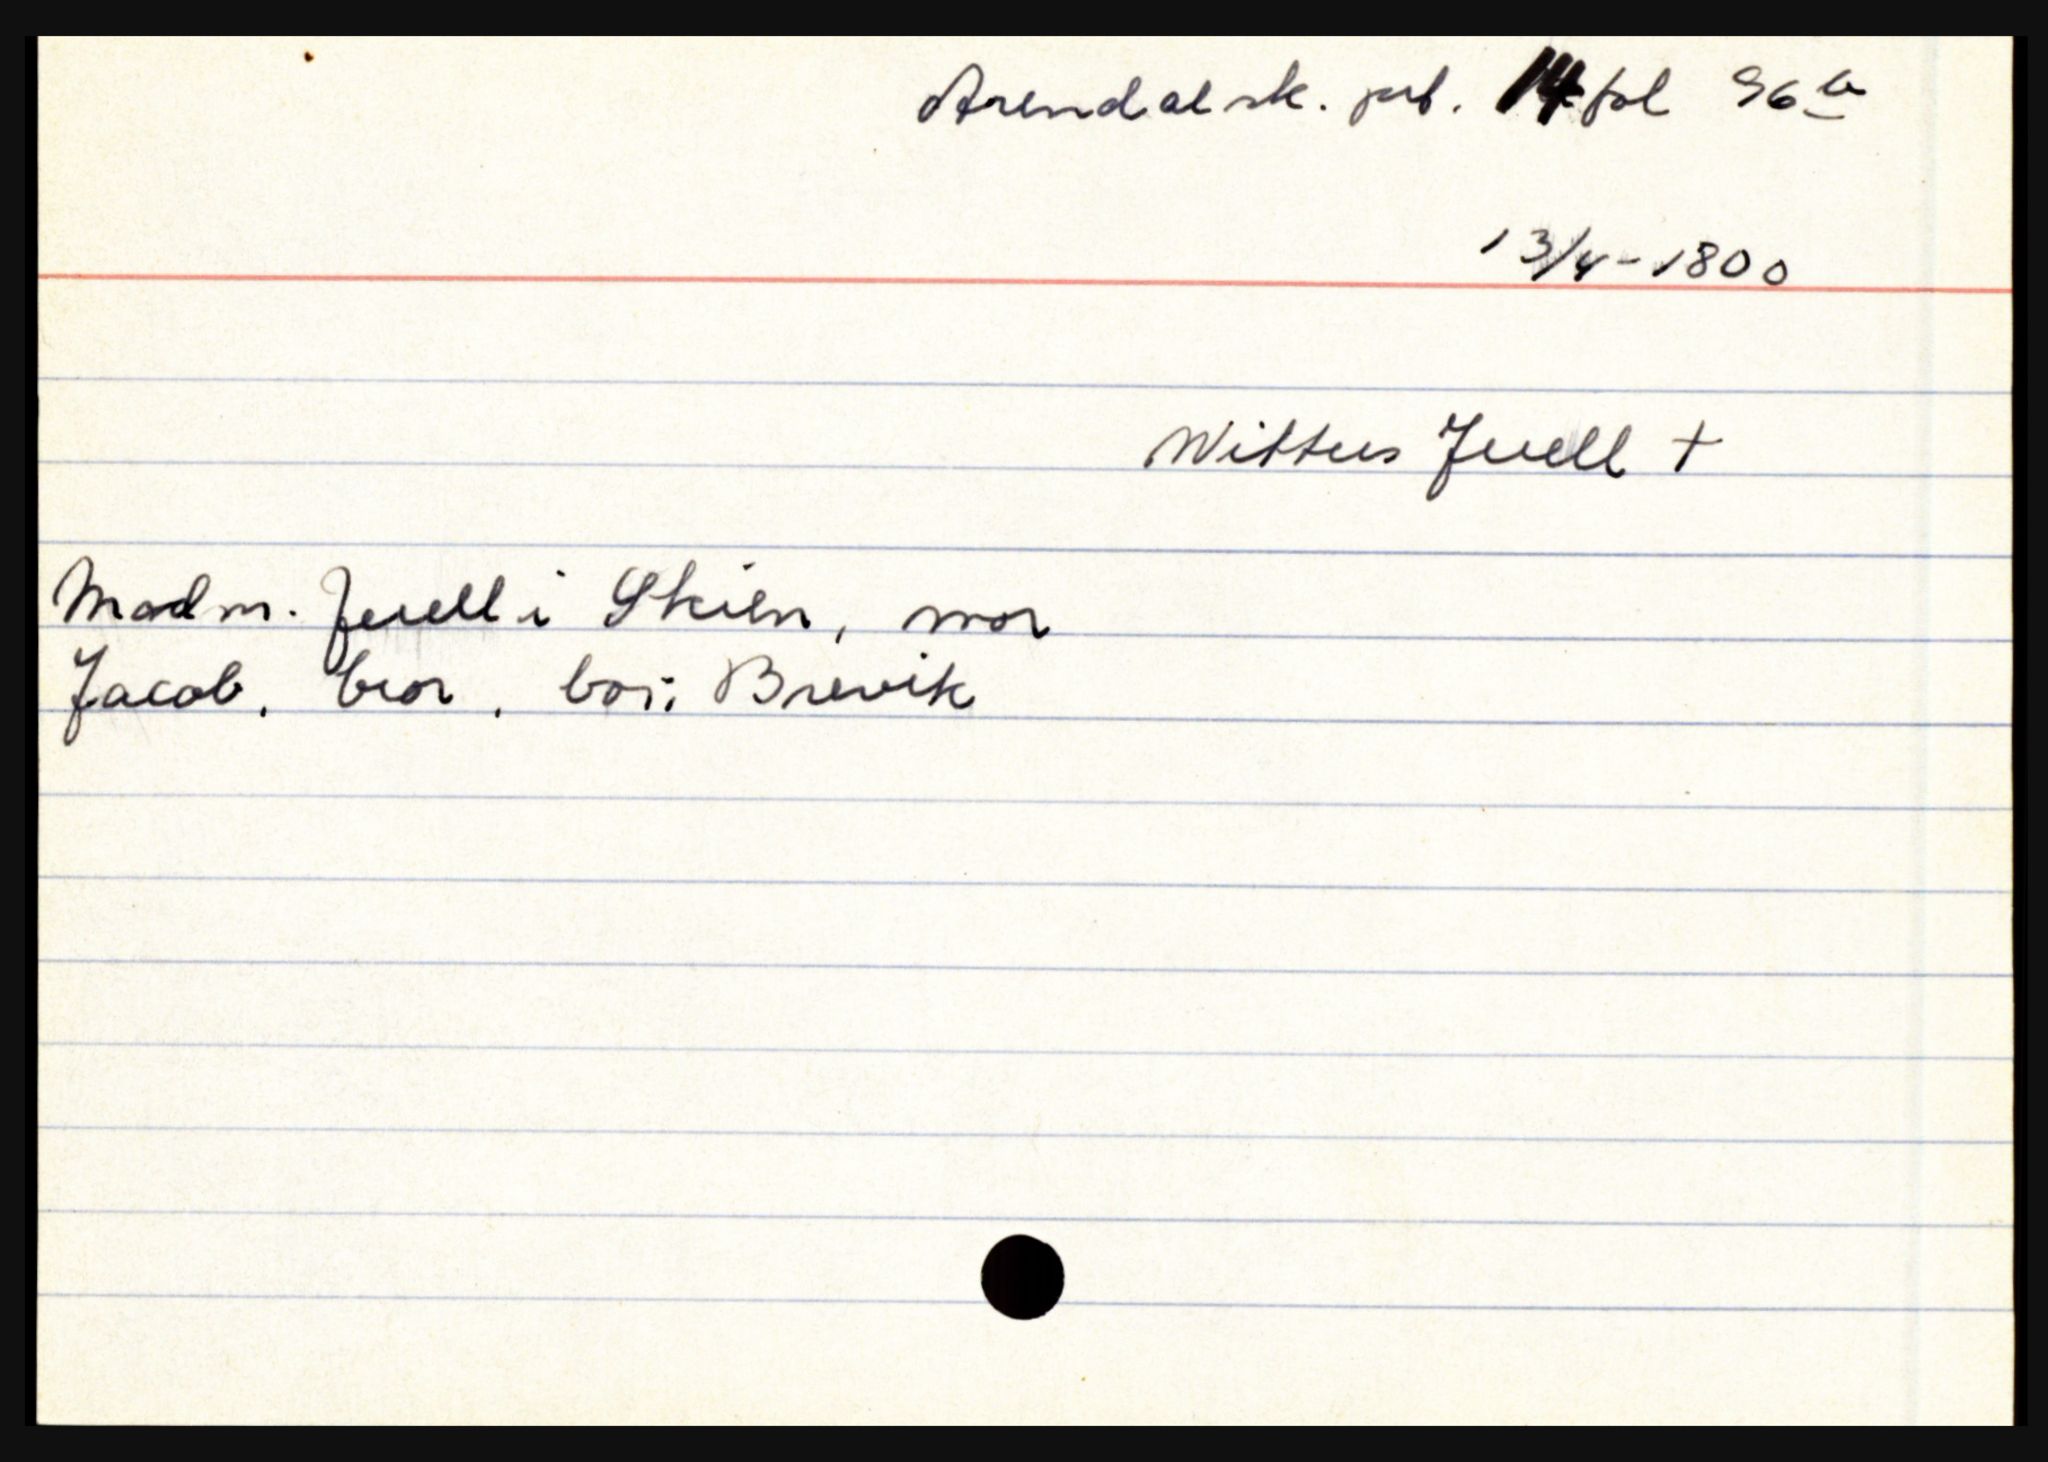 Arendal sk. prt. 14 fol 96 b
13/4-1800
Wittus Juell †
Madm. Juell i Skien, mor
Jacob, bror, bor i Brevik